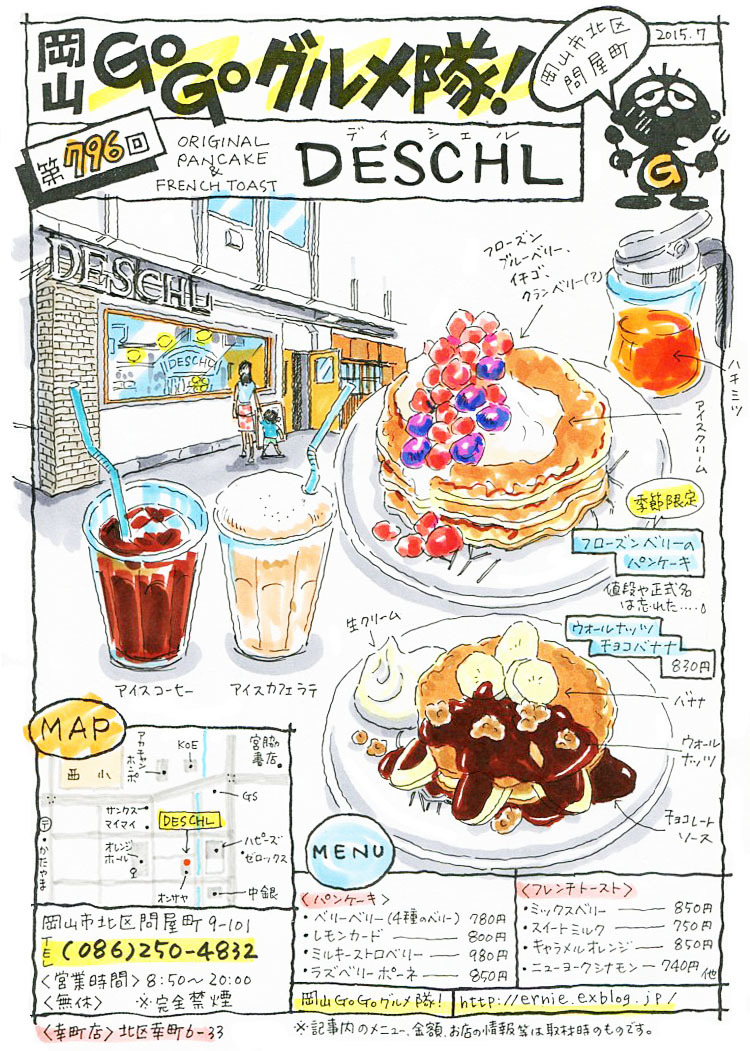 岡山 GoGoグルメ隊!
岡山市北区
問屋町
2015.7
第796回
ORIGINAL
PANCAKE
&
FRENCH TOAST
ディシェル
DESCHL
G
DESCHL
DESCHL
フローズン
ブルーベリー、
イチゴ、
クランベリー(?)
ハチミツ
アイスクリーム
季節限定
フローズンベリーの
パンケーキ
値段や正式名
は忘れた.....
ウォールナッツ
チョコバナナ
830円
生クリーム
バナナ
ウォール
ナッツ
チョコレート
ソース
アイスコーヒー
アイスカフェラテ
MAP
西小
アカチャン
ホンポ
KOE
宮脇
書店
GS
サンクス
マイマイ
DESCHL
オレンジ
ホール
ハピーズ
ゼロックス
〒
かたやま
オンサヤ
中銀
岡山市北区問屋町9-101
TEL (086)250-4832
〈営業時間〉8:50〜20:00
〈無休〉 ※完全禁煙
〈幸町店〉北区幸町6-33
MENU
〈パンケーキ〉
・ベリーベリー(4種のベリー) 780円
・レモンカード 800円
・ミルキーストロベリー 980円
・ラズベリーポーネ 850円
〈フレンチトースト〉
・ミックスベリー 850円
・スイートミルク 750円
・キャラメルオレンジ 850円
・ニューヨークシナモン 740円 他
岡山GoGoグルメ隊! http://ernie.exblog.jp/
※記事内のメニュー、金額、お店の情報等は取材時のものです。